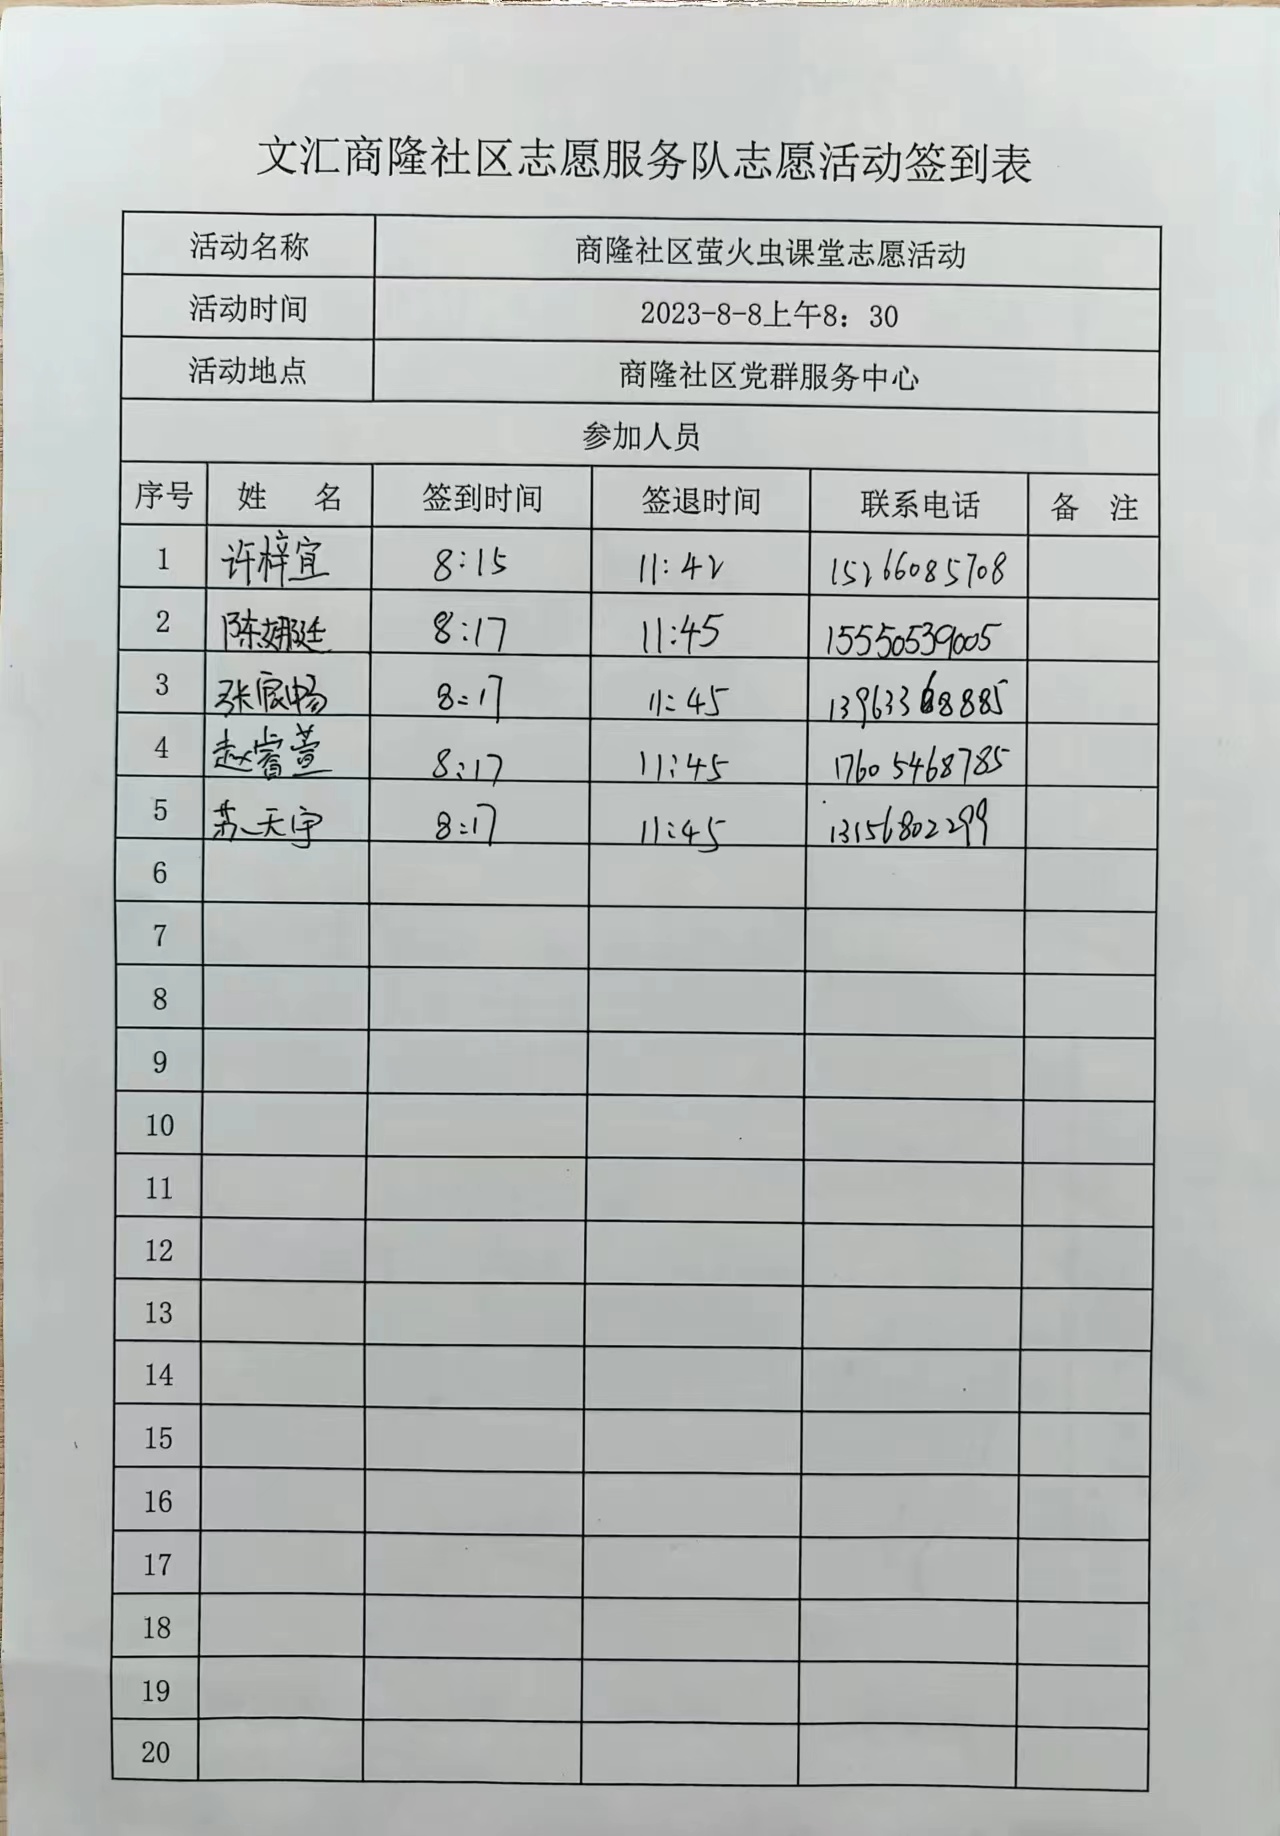 文汇商隆社区志愿服务队志愿活动签到表
活动名称 商隆社区萤火虫课堂志愿活动
活动时间 2023-8-8上午8：30
活动地点 商隆社区党群服务中心
参加人员
序号 姓 名 签到时间 签退时间 联系电话 备 注
1 许梓宜 8:15 11:42 15266085708
2 陈娜廷 8:17 11:45 15550539005
3 张宸畅 8:17 11:45 13963368885
4 赵睿萱 8:17 11:45 17605468785
5 苏天宇 8:17 11:45 13156802299
6
7
8
9
10
11
12
13
14
15
16
17
18
19
20